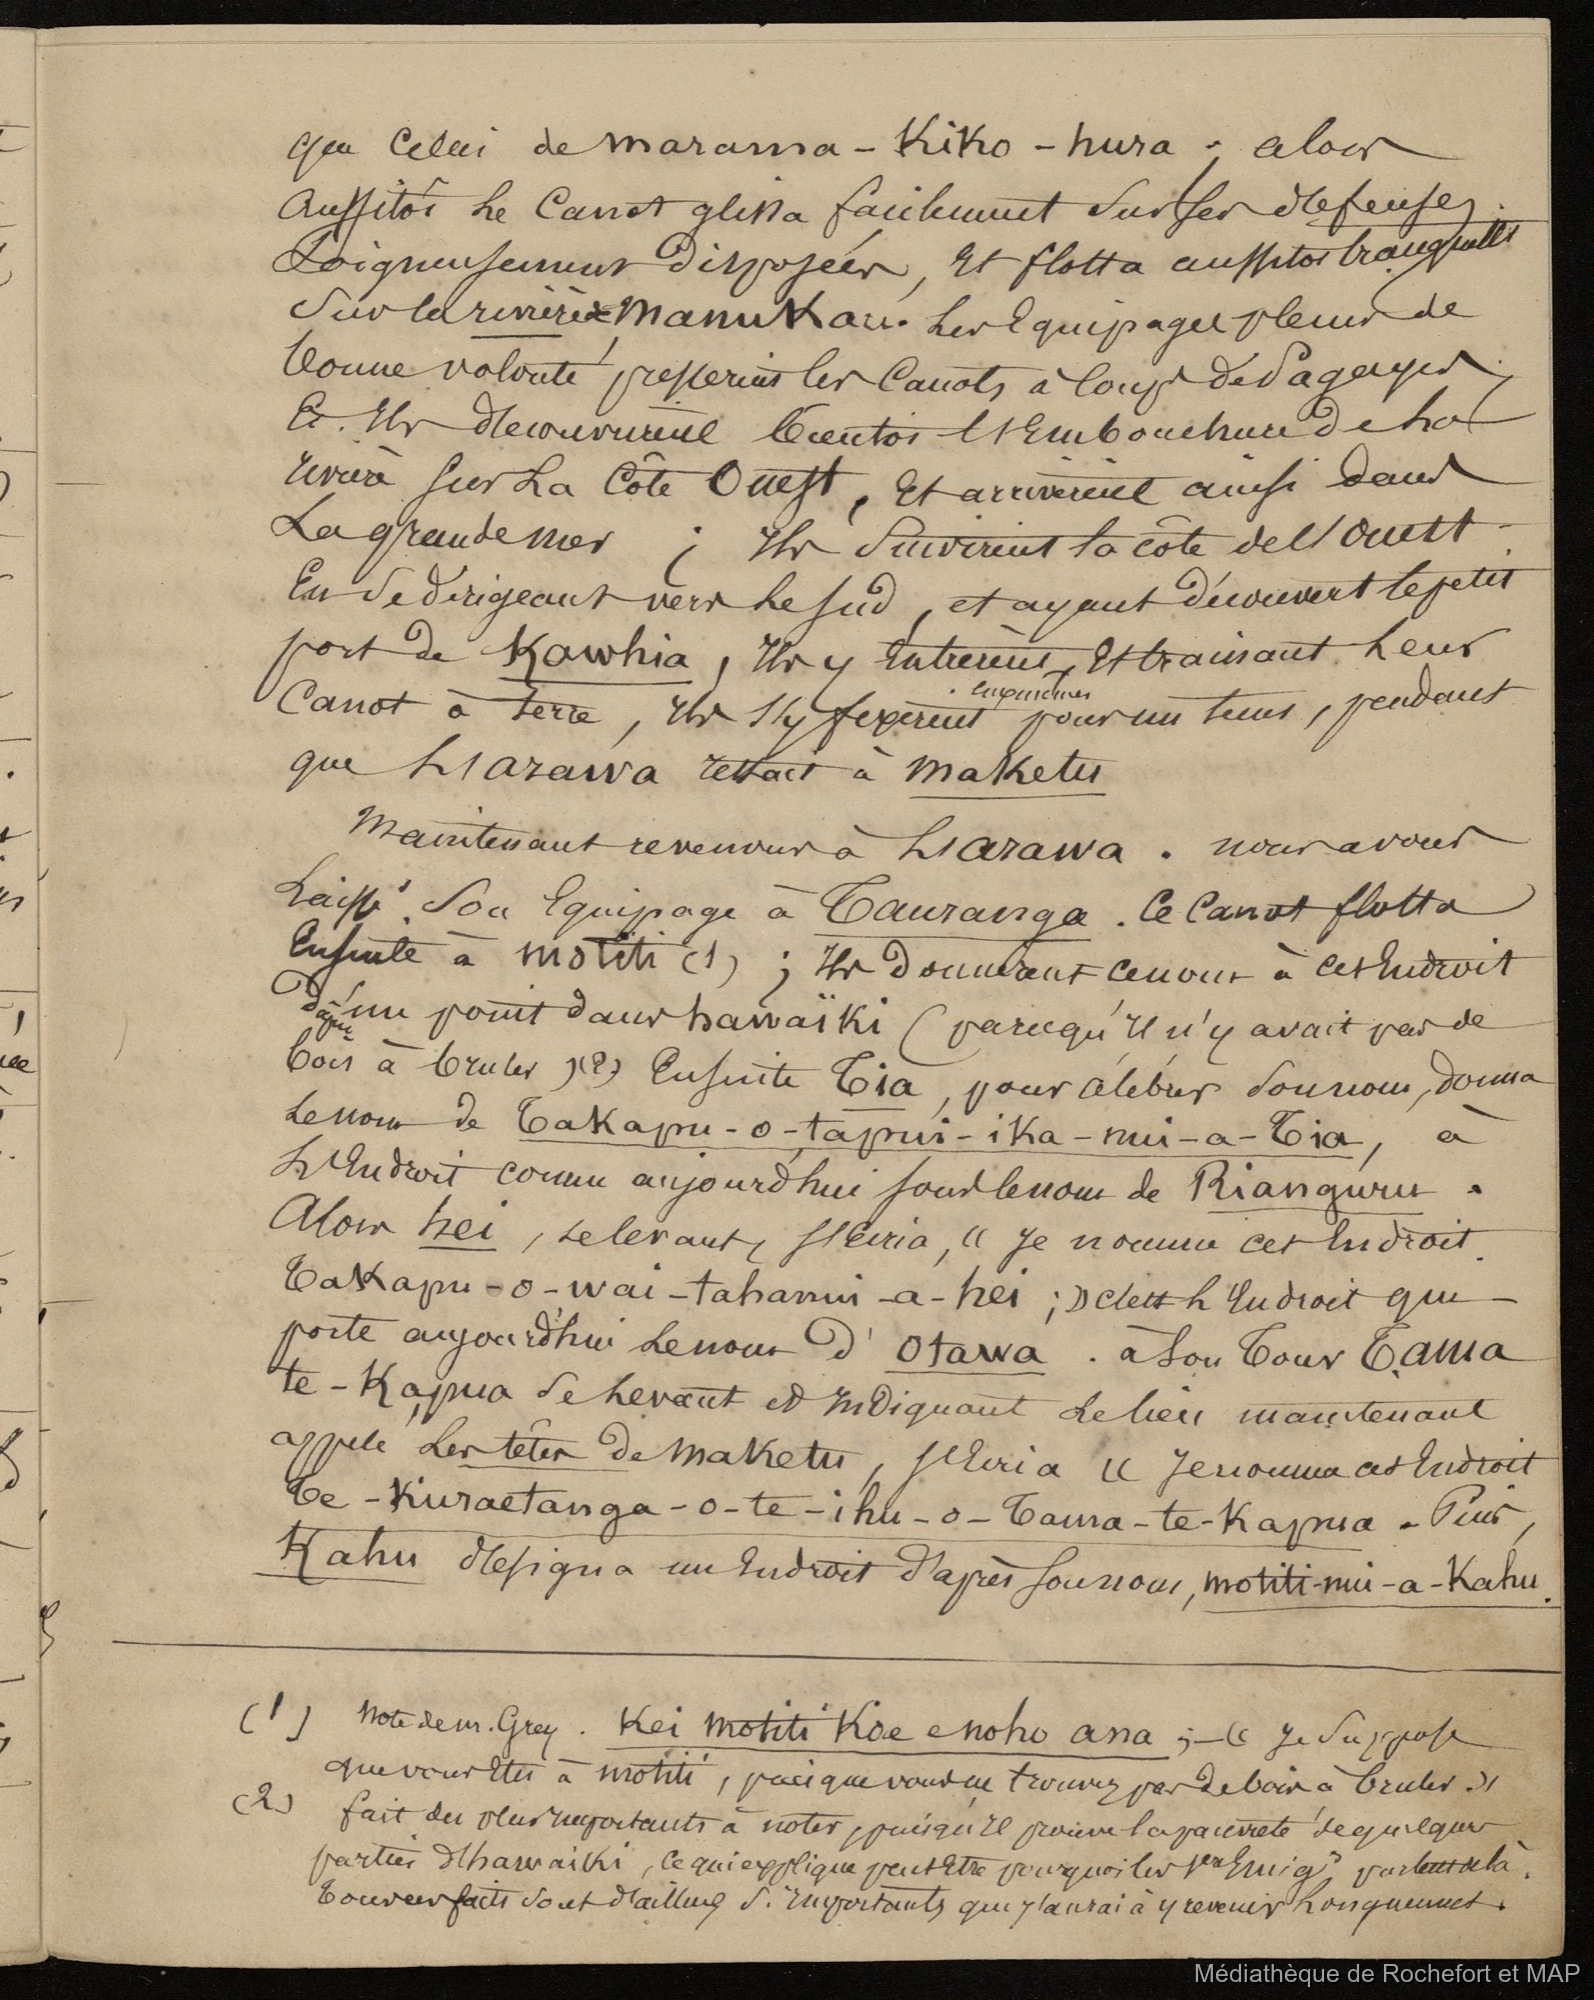 que celui de Marama - Kiko - hura ; alors
aussitôt le Canot glissa facilement sur ses défenses
soigneusement disposées, et flotta aussitôt tranquille
sur la rivière Manukau. Les Equipages pleins de
bonne volonté pressèrent les Canots à coups de Pagayes,
Et Ils découvrirent bientôt l'Embouchure de la
rivière sur La Côte Ouest, Et arrivèrent ainsi dans
La grande mer ; Ils suivirent la côte de l'Ouest
En se dirigeant vers le Sud, et ayant découvert le petit
port de Kawhia, Ils y Entrèrent, Et trainant leur
Canot à terre, Ils s'y fixèrent pour un tems, pendant
que L'arawa restait à Maketu
Maintenant revenons à L'arawa. nous avons
Laissé son Equipage à Tauranga. Ce Canot flotta
Ensuite à Motiti (1) ; Ils donnèrent ce nom à cet Endroit
d'après un point dans hawaïki (parcequ'Il n'y avait pas de
bois à bruler)(2) Ensuite Tia, pour célébrer son nom, donna
le nom de Takapu-o-tapui-ika-nui-a-Tia, à
L'Endroit connu aujourd'hui sous le nom de Rianguru.
Alors hei, se levant, s'Ecria, « Je nomme cet Endroit
Takapu-o-wai-tahanui-a-hei ; » c'est L'Endroit qui
porte aujourd'hui le nom d'Otawa. à son Tour Tama
te-Kapua se levant et Indiquant le lieu maintenant
appelé Les têtes de Maketu, s'Ecria « Je nomme cet Endroit
Te-Kuraetanga-o-te-ihu-o-Tama-te-Kapua. Puis,
Kahu désigna un Endroit d'après son nom, motiti-nui-a-Kahu.
(1) Note de m. Grey. Kei motiti Koe e noho ana ; - « Je suppose
que vous êtes à motiti, puisque vous ne trouvez pas de bois à bruler »
(2) fait des plus Importants à noter, puisqu'Il prouve la pauvreté de quelques
parties d'hawaïki, ce qui explique peut Etre pourquoi les 1ers Emigs partent de là.
Tous ces faits sont d'ailleurs si Importants que j'aurai à y revenir Longuement.
Médiathèque de Rochefort et MAP